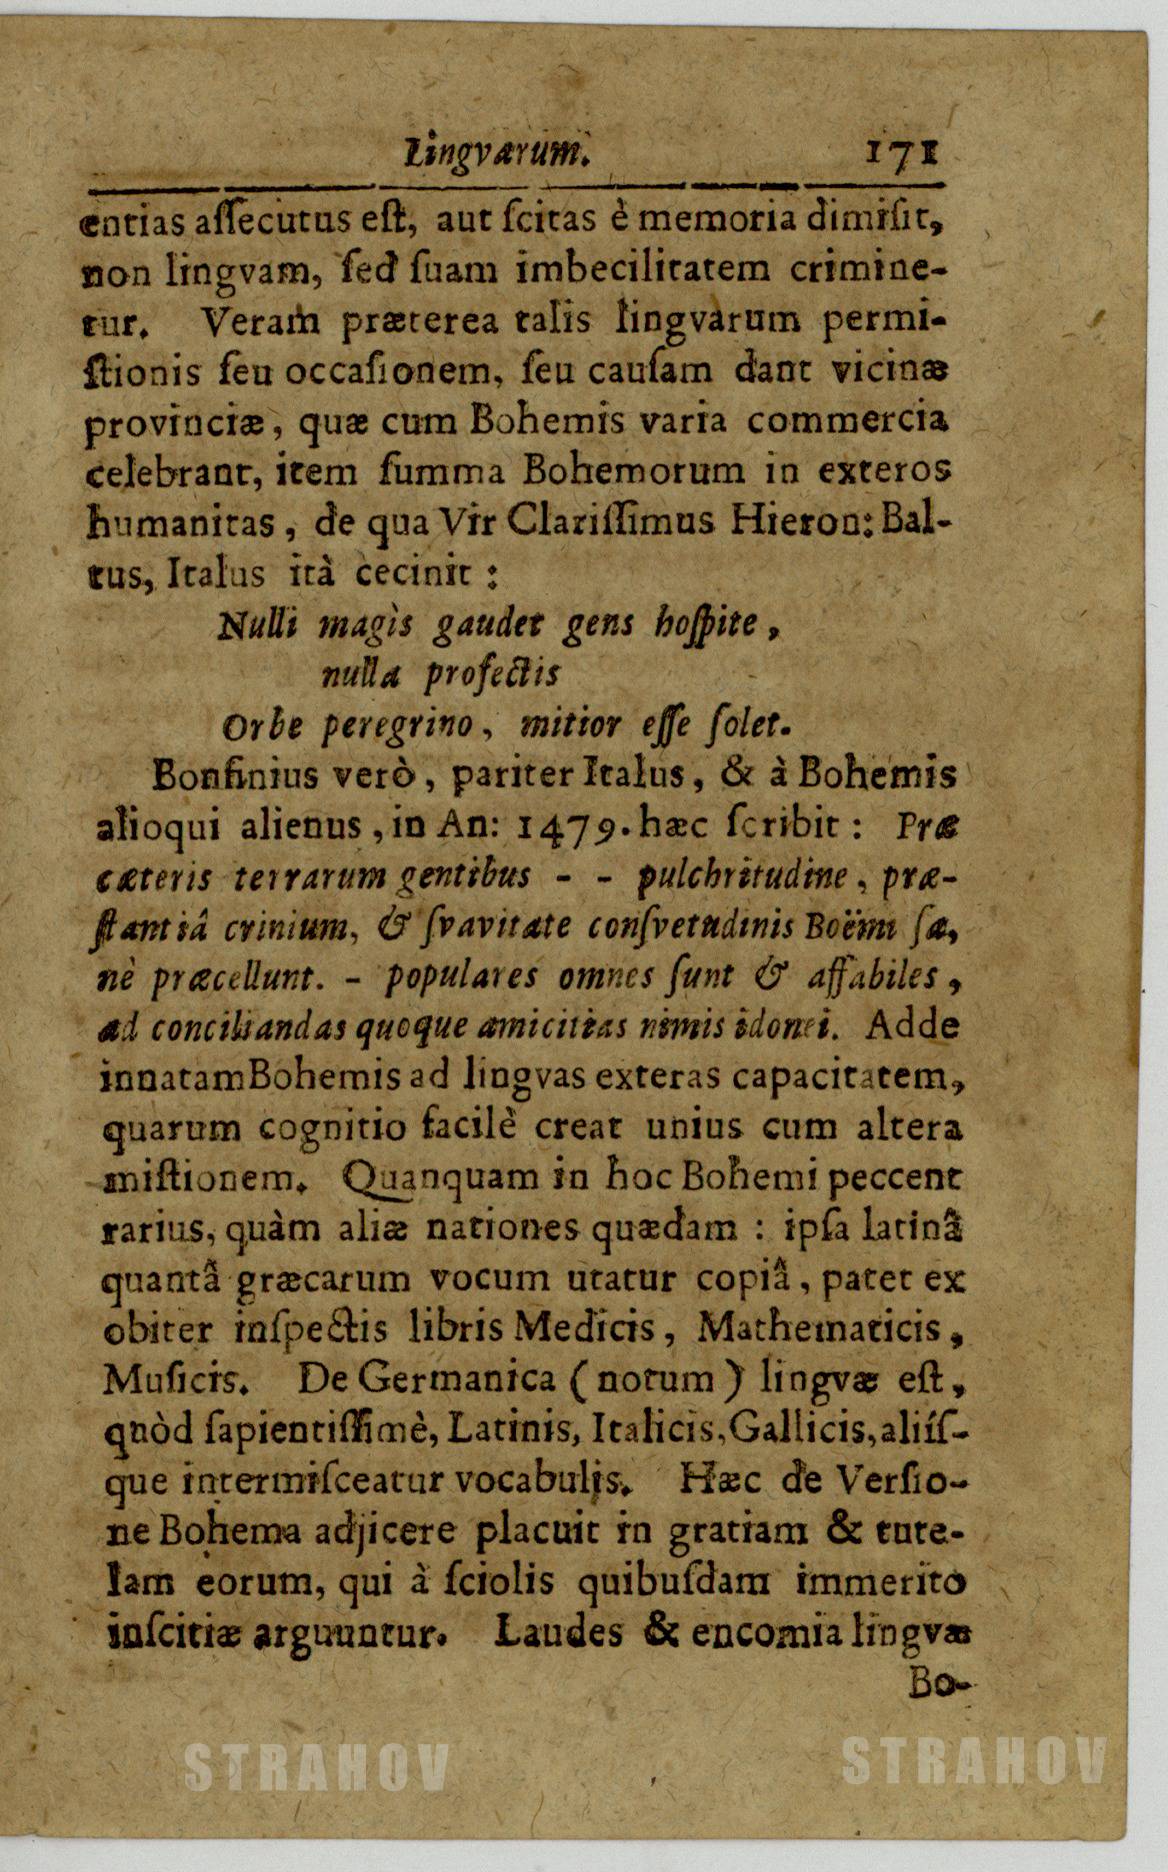 Lingvarum. 171
entias aſſecutus eſt, aut ſcitas è memoria dimiſit,
non lingvam, ſed ſuam imbecilitatem crimine-
tur. Veram præterea talis lingvarum permi-
ſtionis ſeu occaſionem, ſeu cauſam dant vicinæ
provinciæ, quæ cum Bohemis varia commercia
celebrant, item ſumma Bohemorum in exteros
humanitas, de qua Vir Clariſſimus Hieron: Bal-
tus, Italus ità cecinit:
Nulli magìs gaudet gens hoſpite,
nulla profectis
Orbe peregrino, mitior eſſe ſolet.
Bonfinius verò, pariter Italus, & à Bohemis
alioqui alienus, in An: 1479. hæc ſcribit: Præ
cæteris terrarum gentibus - - pulchritudine, præ-
ſtantiâ crinium, & ſvavitate conſvetudinis Boëmi ſa,
nè præcellunt. - populares omnes ſunt & affabiles,
ad conciliandas quoque amicitias nimis idonei. Adde
innatam Bohemis ad lingvas exteras capacitatem,
quarum cognitio facilè creat unius cum altera
miſtionem. Quanquam in hoc Bohemi peccent
rarius, quàm aliæ nationes quædam: ipſa latinâ
quantâ græcarum vocum utatur copiâ, patet ex
obiter inſpectis libris Medicis, Mathematicis,
Muſicis. De Germanica (notum) lingvæ eſt,
quòd ſapientiſſimè, Latinis, Italicis, Gallicis, aliíſ-
que intermiſceatur vocabulis. Hæc de Verſio-
ne Bohema adjicere placuit in gratiam & tute-
lam eorum, qui à ſciolis quibuſdam immerito
inſcitiæ arguuntur. Laudes & encomia lingvæ
Bo-
STRAHOV STRAHOV